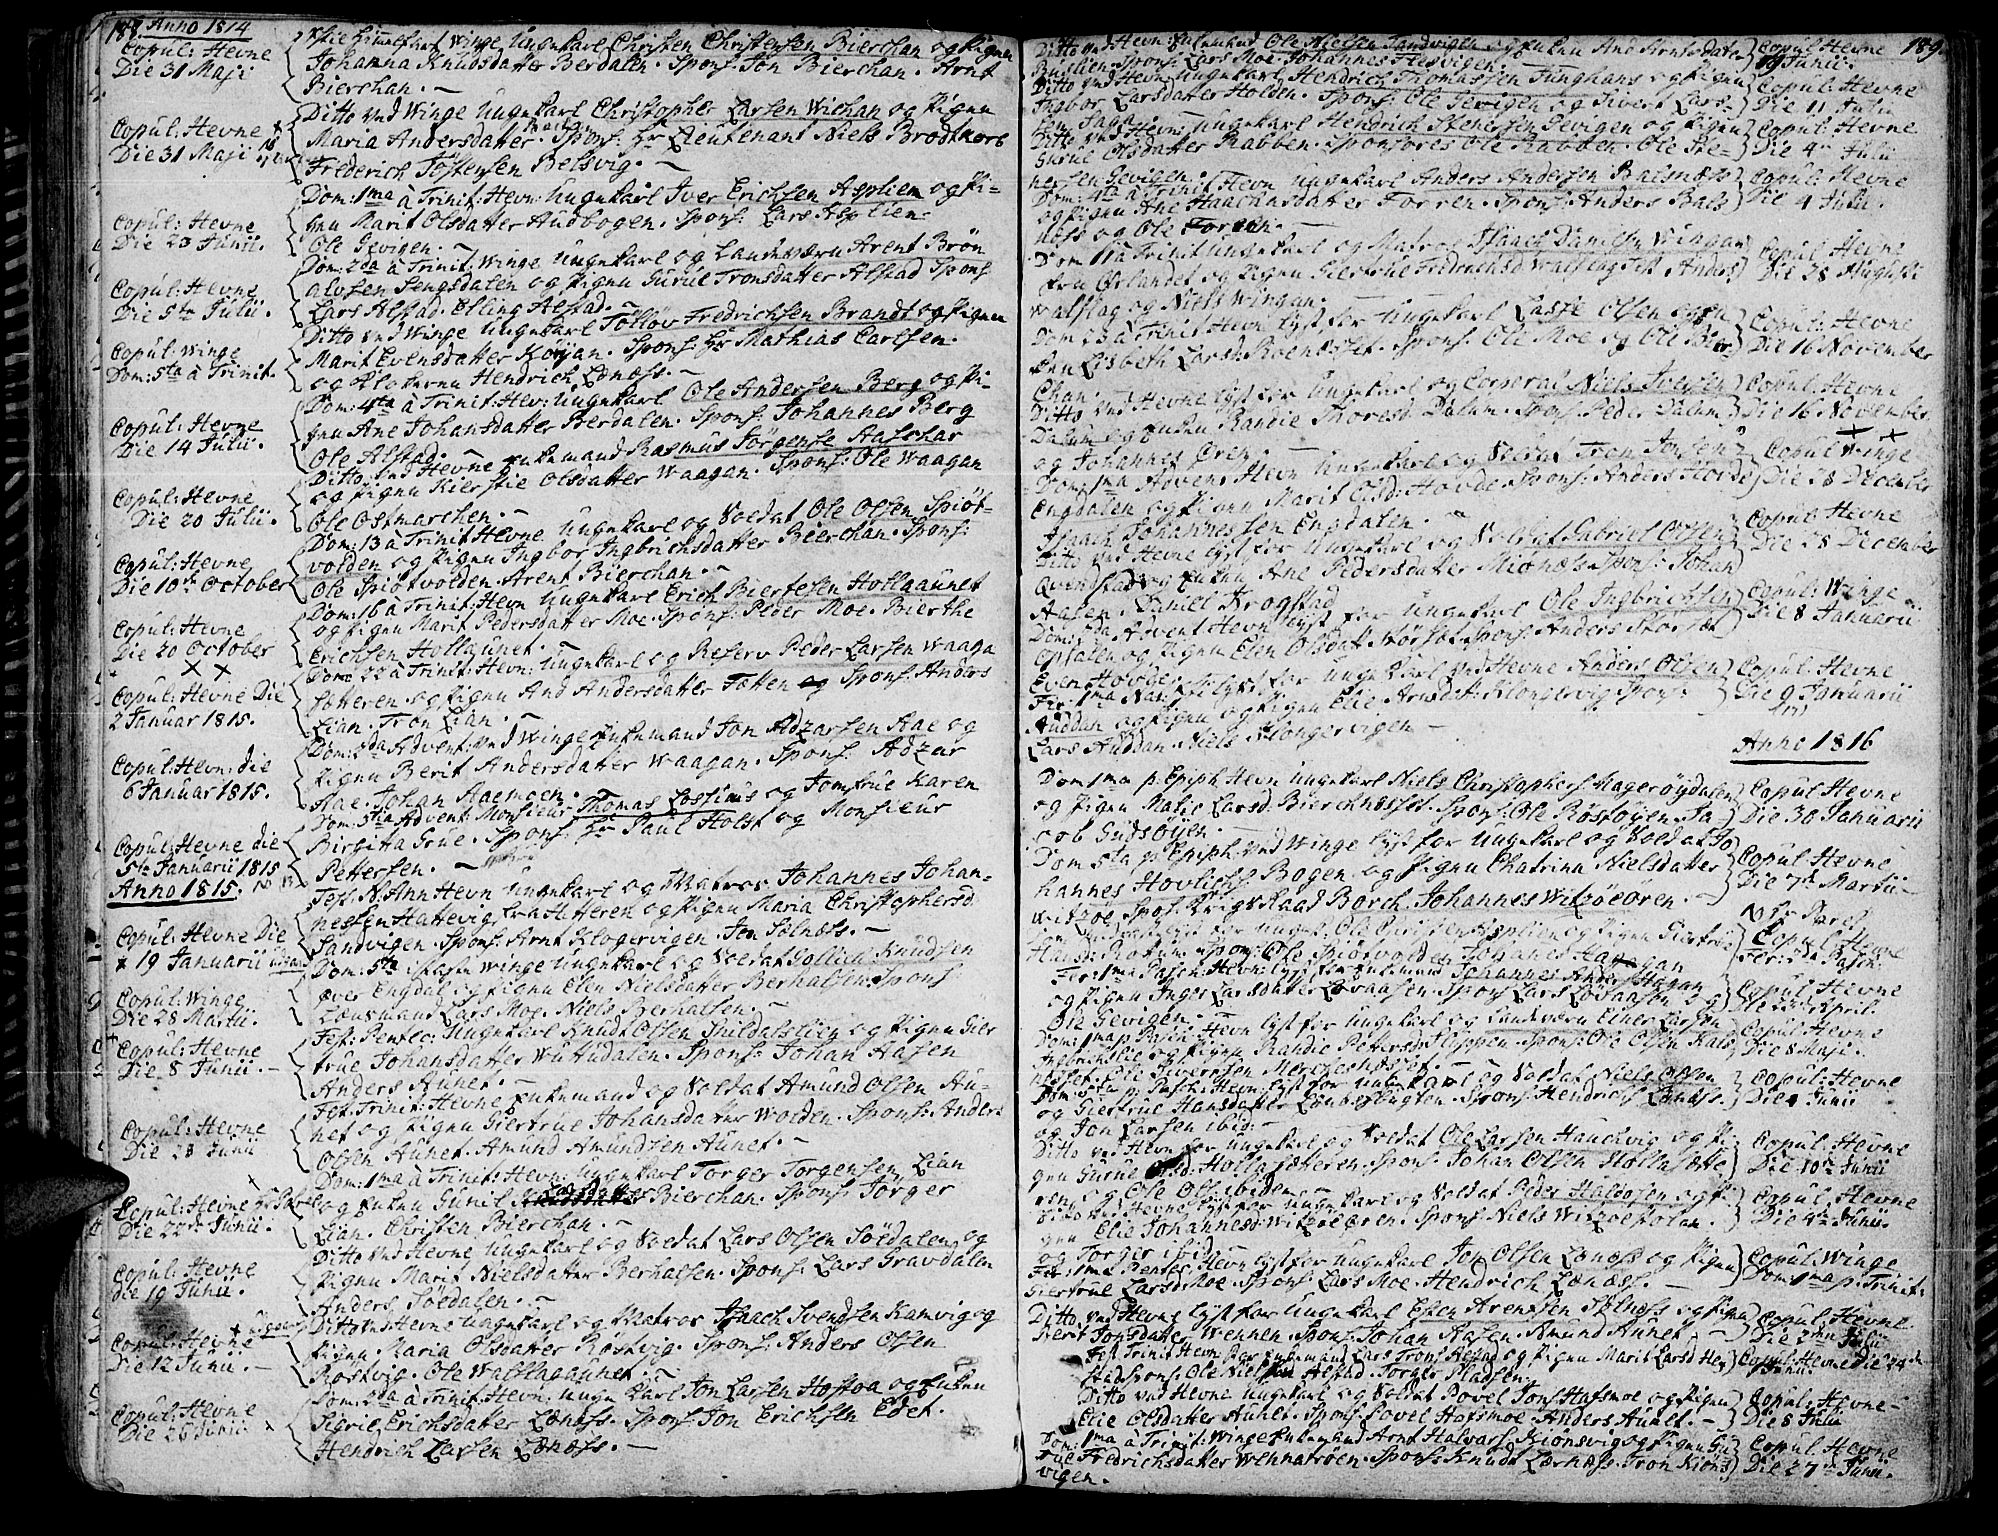 188. Anno 1814
Copul: Hevne
Die 31 Maji
Xstie Himmelfart Winge Ungekarl Christen Christensen Bierchan og Pigen
Johanna Knudsdatter Berdalen. Spons: Jon Bierchan. Arnt
Bierchan. —
Copul: Hevne
Die 31 Maji
Ditto ved Winge Ungekarl Christopher Larsen Wichan og Pigen
Maria Andersdatter. Spons: Hr Lieutenant Niels Brodtkorb
Frederich Tostensen Belsvig. —
Copul: Hevne
Die 23 Junii.
Dom: 1ma à Trinit: Hevn: Ungekarl Iver Erichsen Asplien og Pi-
gen Marit Olsdatter Audbogen. Spons: Lars Asplien.
Ole Gevigen. —
Copul: Hevne
Die 5te Julii.
Dom: 2da à Trinit: Winge Ungekarl og Landværn Arent Brøn
alvsen Sengsdalen og Pigen Guruel Tronsdatter Alstad Spons
Lars Alstad. Elling Alstad. —
Copul: Winge
Dom: 5ta à Trinit.
Ditto ved Winge Ungekarl Tølløv Fredrichsen Brandt og Pigen
Marit Evensdatter Korjan. Spons: Hr Mathias Carlsen.
og Klokeren Hendrich Lønæss. —
Copul: Hevne
Die 14 Julii.
Dom: 4ta à Trinit: Hev: Ungekarl Ole Andersen Berg og Pi-
gen Ane Johansdatter Sverdalen. Spons: Johannes Berg
Ole Alstad. —
Copul: Hevne
Die 20 Julii.
Ditto ved Hevne Enkemand Rasmus Jørgense Aaschar
og Pigen Kierstie Olsdatter Waagan. Spons: Ole Waagan
Ole Ostmarchen. —
Copul: Hevne
Die 10de October
Dom: 13 à Trinit Hevne Ungekarl og Soldat Ole Olsen Spiøt-
volden og Pigen Ingbor Ingbrichsdatter Bierchan. Spons:
Ole Spiøtvolden. Arent Bierchan. —
Copul: Hevne
Die 20 October
Dom: 16 à Trinit: Hevn Ungekarl Erich Biertesen Hollgaunet
og Pigen Marit Pedersdatter Moe. Spons: Peder Moe. Bierthe
Erichsen Hollaunet. —
Copul: Hevne Die
2 Januar 1815.
Dom: 22 à Trinit: Hevn: Ungekarl og Reserv Peder Larsen Waaga
fotteren og Pigen And Andersdatter Totten Spons: Anders
Lian. Tron Lian. —
Copul: Hevn: die
6 Januar 1815.
Dom: 2da Advent: ved Winge Enkemand Jon Adzarsen Aae og
Pigen Berit Andersdatter Waagan. Spons: Adzar
Aae. Johan Aaemoen.
Copul: Hevne die
5te Januarii 1815
Dom: 3tia Advent: Monsieur Thomas Lossius og Jomfrue Karen
Birgitta Grue. Spons: Hr Paul Holst og Monsieur
Pettersen. —
Anno 1815.
Copul: Hevne Die
19 Januarii
Fest: N: Ann Hevn Ungekarl og Matros Johannes Johan-
nessen Hattevig fra Hitteren og Pigen Maria Christophersd
Sandvigen. Spons: Arnt Klogervigen. Jon Solnæss. —
Copul: Winge
Die 28 Martii.
Dom: 5ta i faste Winge Ungekarl og Soldat Gollich Knudsen
over Engdal og Pigen Elen Nielsdatter Berhalsen. Spons
Lensmand Lars Moe. Niels Berhalsen. —
Copul: Hevne
Die 8 Junii. —
Fest: Pentec: Ungekarl Knudt Olsen Snildalslien og Pigen Gier
true Johansdatter Wuttudalen. Spons: Johan Aasen
Anders Aunet. —
Copul: Hevne
Die 28 Junii
Fest: Trinit: Hevne Enkemand og Soldat Amund Olsen Au-
net og Pigen Giertrue Johansdatter Wolden. Spons: Anders
Olsen Aunet. Amund Amundsen Aunet. —
Copul: Hevne
Die 22de Junii.
Dom: 1ma à Trinit: Hevn: Ungekarl Torger Torgersen Lian
og Enken Gunil Bierchan. Spons: Jørger
Lian. Christen Bierchan. —
Copul: Hevne
die 19 Junii.
Ditto ved Hevne Ungekarl og Soldat Lars Olsen Søedalen og
Pigen Marit Nielsdatter Berhalsen. Spons: Lars Gravdalen
Anders Søedalen. —
Copul: Hevne
Die 12 Junii. —
Ditto ved Hevne Ungekarl og Matros Isaach Svendsen Kamvig og
Pigen Maria Olsdatter Røstvig. Spons: Anders Olsen
Røstvig. Ole Walslagaunet. —
Copul: Hevne
Die 26 Junii
Dom: 2da à Trinit: Hevn: Unge Karl Jon Larsen Hostoa og Enken
Sigrie Erichsdatter Lonæss. Spons: Jon Erichsen Edet.
Hendrich Larsen Lonæss. —
189
Ditto ved Hevn: Enkemand Ole Nielsen Sandvigen og Enken And Arntsdatter
Spons: Lars Moe. Johannes Hestvigen.
Copul: Hevne
19 Junii.
Ditto ved Hevn Ungekarl Hendrich Thomassen Junghans og Pigen
Ingbor Larsdatter Holden. Spons: Ole Gevigen og Sivert Lars-
Copul: Hevne
Die 11 Julii
Ditto ved Hevn: Ungekarl Hendrich Stenersen Gevigen og Pigen
Gurue Olsdatter Rabben. Sponsores Ole Rabben. Ole Ste-
nersen Gevigen.
Copul: Hevne
Die 4de Julii
Dom: 4ta à Trinit Hevn Ungekarl Anders Andersen Balsnæss
og Pigen Ane Haachensdatter Forren. Spons: Anders Bals
næss og Ole Forren. —
Copul: Hevne
Die 4 Julii.
Dom 11 à Trinit Ungekarl og Matros Isaach Danielsen Wingan
fra Ørlandet og Pigen Giertrue Fredrichsd Walslag Test Anders
Walslag og Niels Wingan.
Copul: Hevne
Die 28 Augusti
Dom 23 à Trinit Hevn lyst for Ungekarl Lasse Olsen
Lisbeth Larsd: Roensset. Spons: Ole Moe og Ole Bier-
Chan.
Copul: Hevne
Die 16 November
Ditto ved Hevne lyst for Ungekarl og Corporal Niels Iversen
Dalum og Enken Randie Thoresd Dalum. Spons: Peder Dalum
og Johannes Øren. —
Copul: Hevne
Die 16 November
Dom: 1ma Adven: Hevn Ungekarl og Soldat Tron Jonsen
Engdalen og Pigen Marit Olsd: Hovde. Spons: Anders Hovde
Isaach Johannessen Engdalen.
Copul Winge
Die 28 December
Ditto ved Hevne lyst for Ungekarl og Soldat Gabriel Olsen
Qvenstad og Enken Ane Pedersdatter Mionæs. Spons: Johan
Aasen. Daniel Krogstad
Copul Hevne
Die 28 December
Dom: 2da Advent Hevn lyst for Ungekarl Ole Ingbrichsen
Opdalen og Pigen Elen Olsdat Storsæt. Spons: Anders Storsæt
Even Hovde.
Copul: Winge
Die 8 Januarii
Fer: 1ma Nat: lyst for Ungekarl ved Hevne Anders Olsen
Auddan og Pigen Elie Arnsdat: Klongervig Spons:
Lars Auddan. Niels Klongervigen —
Copul: Hevne
Die 9 Januarii
Anno 1816
Dom 1ma p. Epiph Hevn Ungekarl Niels Christophers: Magerøydalen
og Pigen Malie Larsd: Bierchnesset. Spons: Ole Røstøyen. Ja
cob Gudsøyen.
Copul Hevne
Die 30 Januarii
Dom 5ta p: Epiph: ved Winge lyst for Ungekarl og Soldat Jo
hannes Hovlichs: Bogen og Pigen Chatrina Nielsdatter
Witzoe. Spons: Krigs Raad Borch. Johannes Witzoeøren. —
Copul Hevne
Die 7de Martii
lyst for Ungek: Ole Christen Asplien og Pigen Giertrue
Hansd: Rotum. Spons: Ole Spiøtvolden. Johannes Hagan
Copul. Hevne
Fer: 2da Pasch:
Fer: 1ma Pasch: Hevne lyst for Enkemand Johannes Anders: Hagan
og Pigen Inger Larsdatter Løvaasen. Spons: Lars Løvaasen og
Ole Gevigen. —
Copul: Hevne
Die 22de April.
Dom: 1ma p Pasch: Hevn lyst for Ungekarl og Landværn Einer Larsen
Ingbrichslie og Pigen Randie Petersd: Sleppen. Spons: Ole Olsen Kals
næset. Ole Sivertsen Merchesnæsset.
Copul: Hevne
Die 8 Maji.
Dom: 5ta p: Pasch: Hevn: lyst for Ungekarl og Soldat Niels Olsen
og Giertrue Hansdatter Lønbergengten. Spons Hendrich Lonæss.
og Jon Larsen ibid: —
Copul: Hevne
Die 4 Junii
Ditto ved Hevn for Ungekarl og Soldat Ole Larsen Hauckvig og Pi-
gen Gurue Hollasætteren. Spons: Johan Olsen Hollasætte
ren, og Ole Ols: ibidem. —
Copul. Hevne
Die 10de Junii
Ditto ved Hevne lyst for Ungekarl og Soldat Peder Haldosen og Pi
gen Elie Johannesd: Witzoeøren. Spons: Niels Witzoestolan.
og Torger ibid:
Copul: Hevne
Die 4de Junii.
Fer: 1ma Pentec: Hevn lyst for Ungekarl Jon Olsen Lonæss og Pigen
Giertrue Larsd: Moe. Spons: Lars Moe. Hendrich Lonæss. —
Copul: Winge
Dom: 1ma p: Trinit:
Ditto ved Hevne lyst for Ungekarl Esten Arentsen Solnæss og Pigen
Berit Jonsdatter Wennen. Spons: Johan Aasen. Amund Aunet. —
Copul: Hevne
Die 2den Julii
Fest Trinit Hevn for Enkemand Lars Trons: Alstad og Pigen Marit Larsd Heg
stad spons: Ole Nielsen Alstad. Torger Pladsen.
Copul: Hevne Die 24de
Junii.
Ditto ved Hevne Ungekarl og Soldat Povel Jons: Hafsmoe og Pigen
Elie Olsdatter Aunet. Spons: Povel Hafsmoe. Anders Aunet. —
Copul: Hevne
Die 8 Julii
Dom: 1ma à Trinit: Winge Enkemand Arnt Halvars: Kionsvig og Pigen Gu
rue Fredrichsdatter Wennatrøen. Spons: Knudt Lernæss. Tron Kions
vigen.
Copul: Hevne
Die 27de Junii.